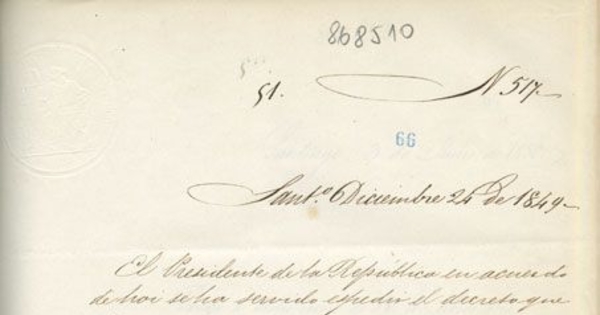 868510
51.
N. 517.
66
Sant.º Diciembre 24 de 1849.
El Presidente de la República en acuerdo
de hoi se ha servido espedir el decreto que